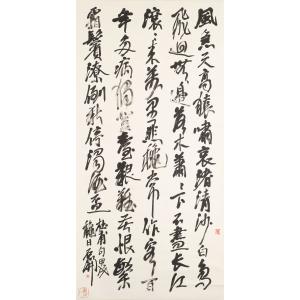 風急天高猿嘯哀渚清沙白鳥
飛迴無邊落木蕭々下不盡長江
滾々来萬里悲龝常作客百
年多病獨登臺艱難苦恨繁
霜鬢潦倒新停濁酒杯
杜甫句
龝日